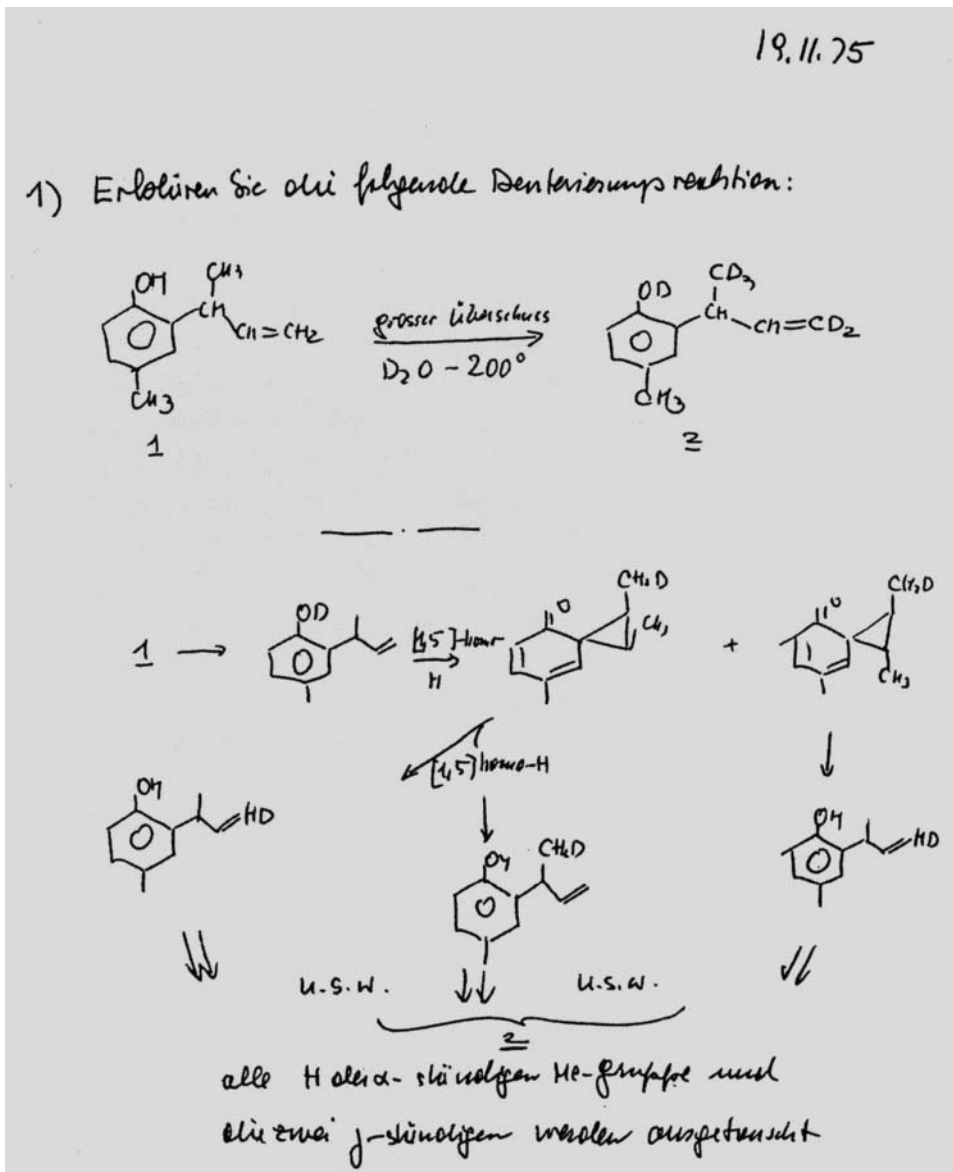 19.11.75
1) Erklären Sie die folgende Deuterierungsreaktion:
OH
CH3
CH
CH=CH2
CH3
1
grosser Überschuss
D2O - 200°
OD
CD3
CH
CH=CD2
CH3
2
1
OD
[1,5]-homo-
H
O
CH2D
CH3
+
O
CH2D
CH3
[1,5]homo-H
OH
HD
OH
CH2D
OH
HD
u.s.w.
u.s.w.
2
alle H der α-ständigen Me-Gruppe und
die zwei γ-ständigen werden ausgetauscht